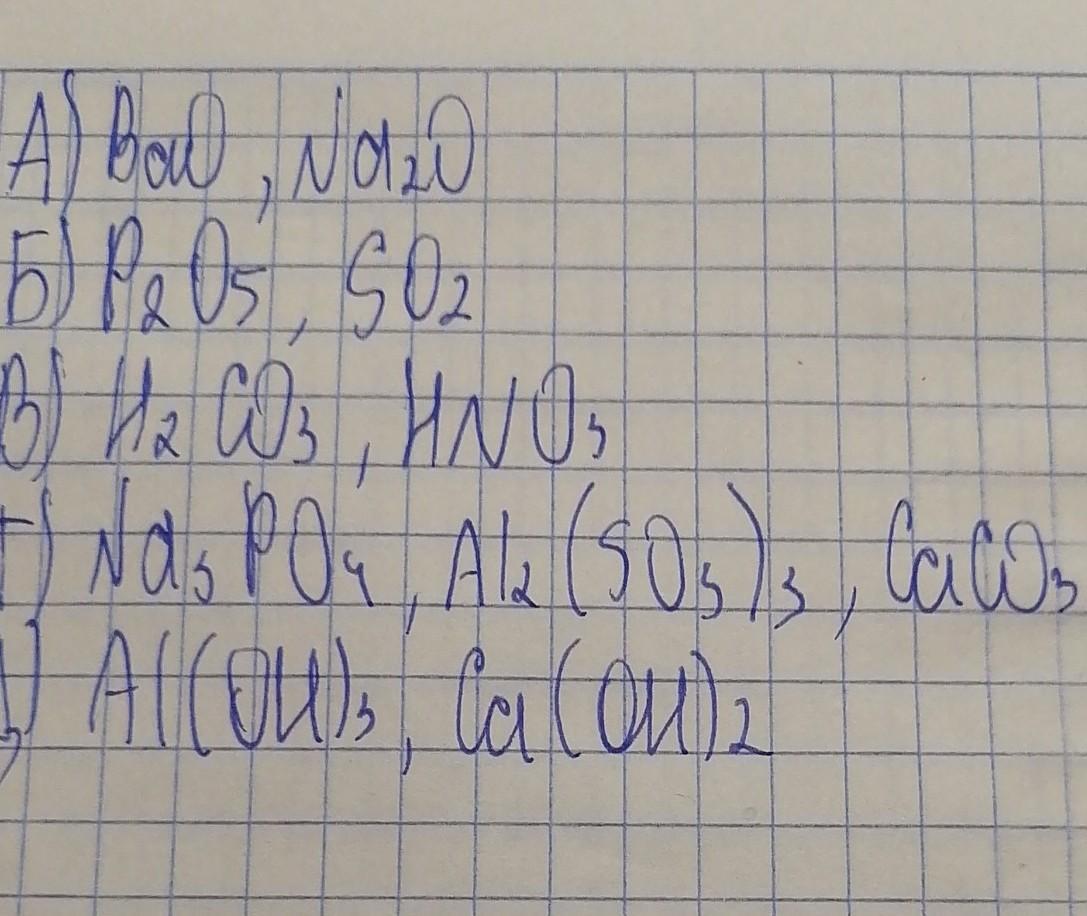 А) BaO, Na₂O
Б) P₂O₅, SO₂
В) H₂CO₃, HNO₃
Г) Na₃PO₄, Al₂(SO₃)₃, CaCO₃
Д) Al(OH)₃, Ca(OH)₂